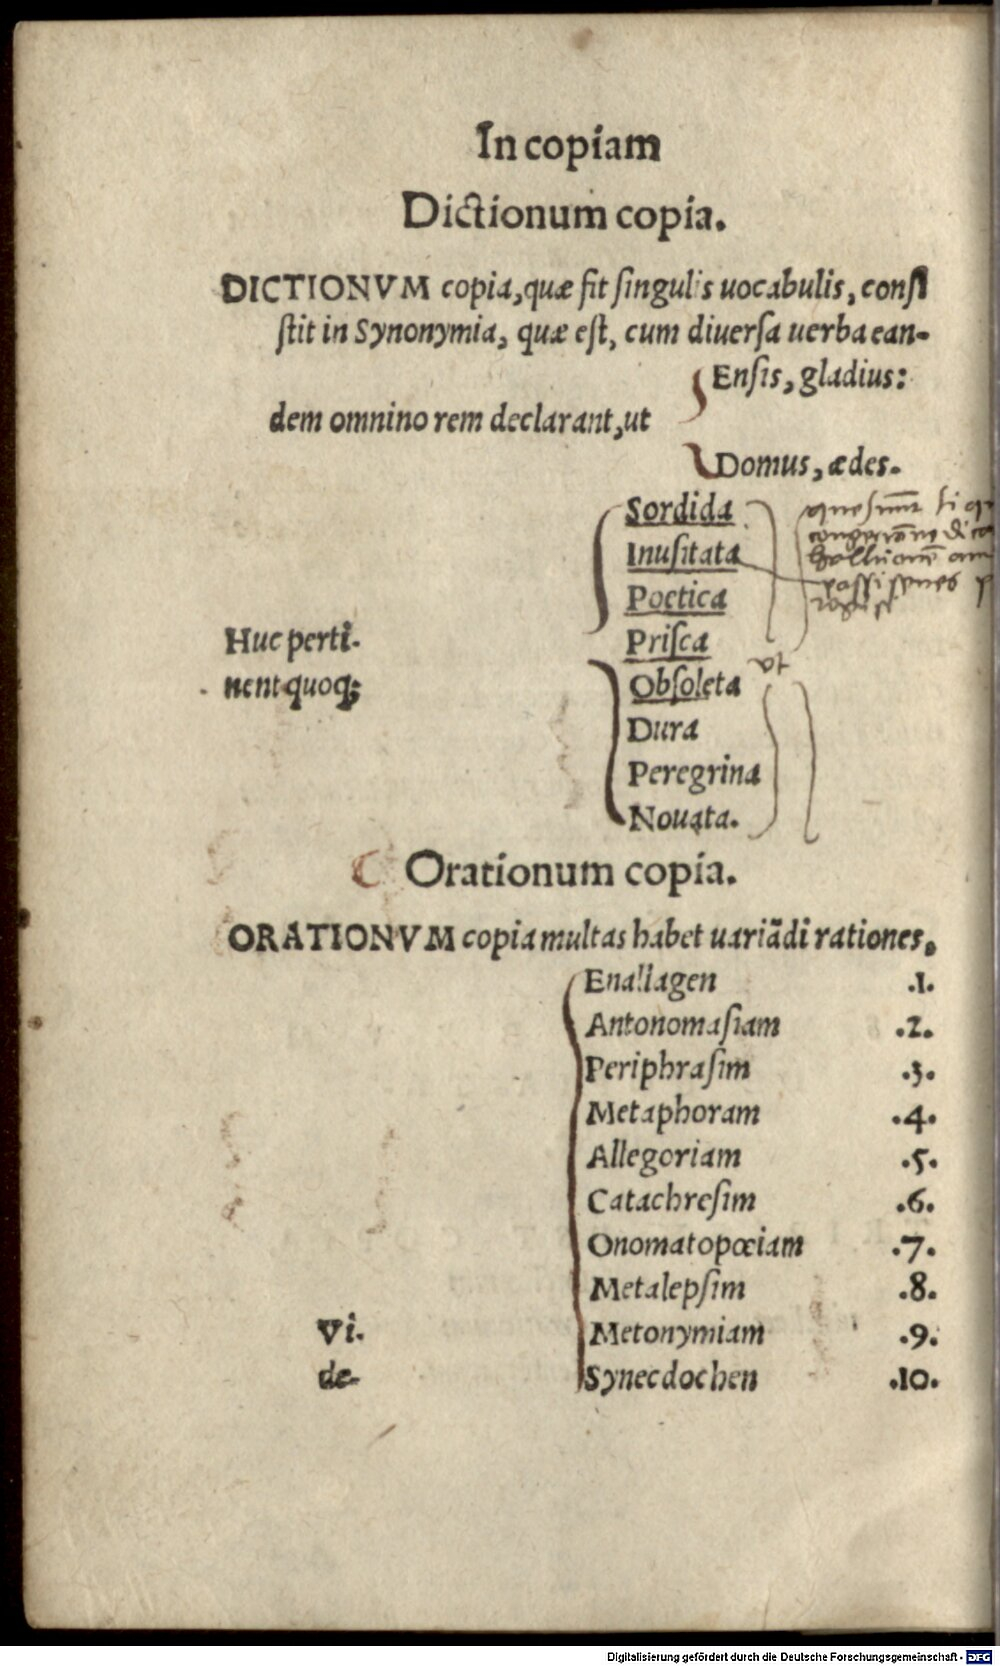 In copiam
Dictionum copia.
DICTIONVM copia, quæ fit ſingulis uocabulis, conſi
ſtit in Synonymia, quæ eſt, cum diuerſa uerba ean-
Enſis, gladius:
dem omnino rem declarant, ut
Domus, ædes.
Sordida
Inuſitata
Poetica
Priſca
Huc perti-
nent quoq;
ut
Obſoleta
Dura
Peregrina
Nouata.
Orationum copia.
ORATIONVM copia multas habet uariãdi rationes.
Enallagen .1.
Antonomaſiam .2.
Periphraſim .3.
Metaphoram .4.
Allegoriam .5.
Catachreſim .6.
Onomatopœiam .7.
Metalepſim .8.
Vi- Metonymiam .9.
de- Synecdochen .10.
Digitalisierung gefördert durch die Deutsche Forschungsgemeinschaft - DFG